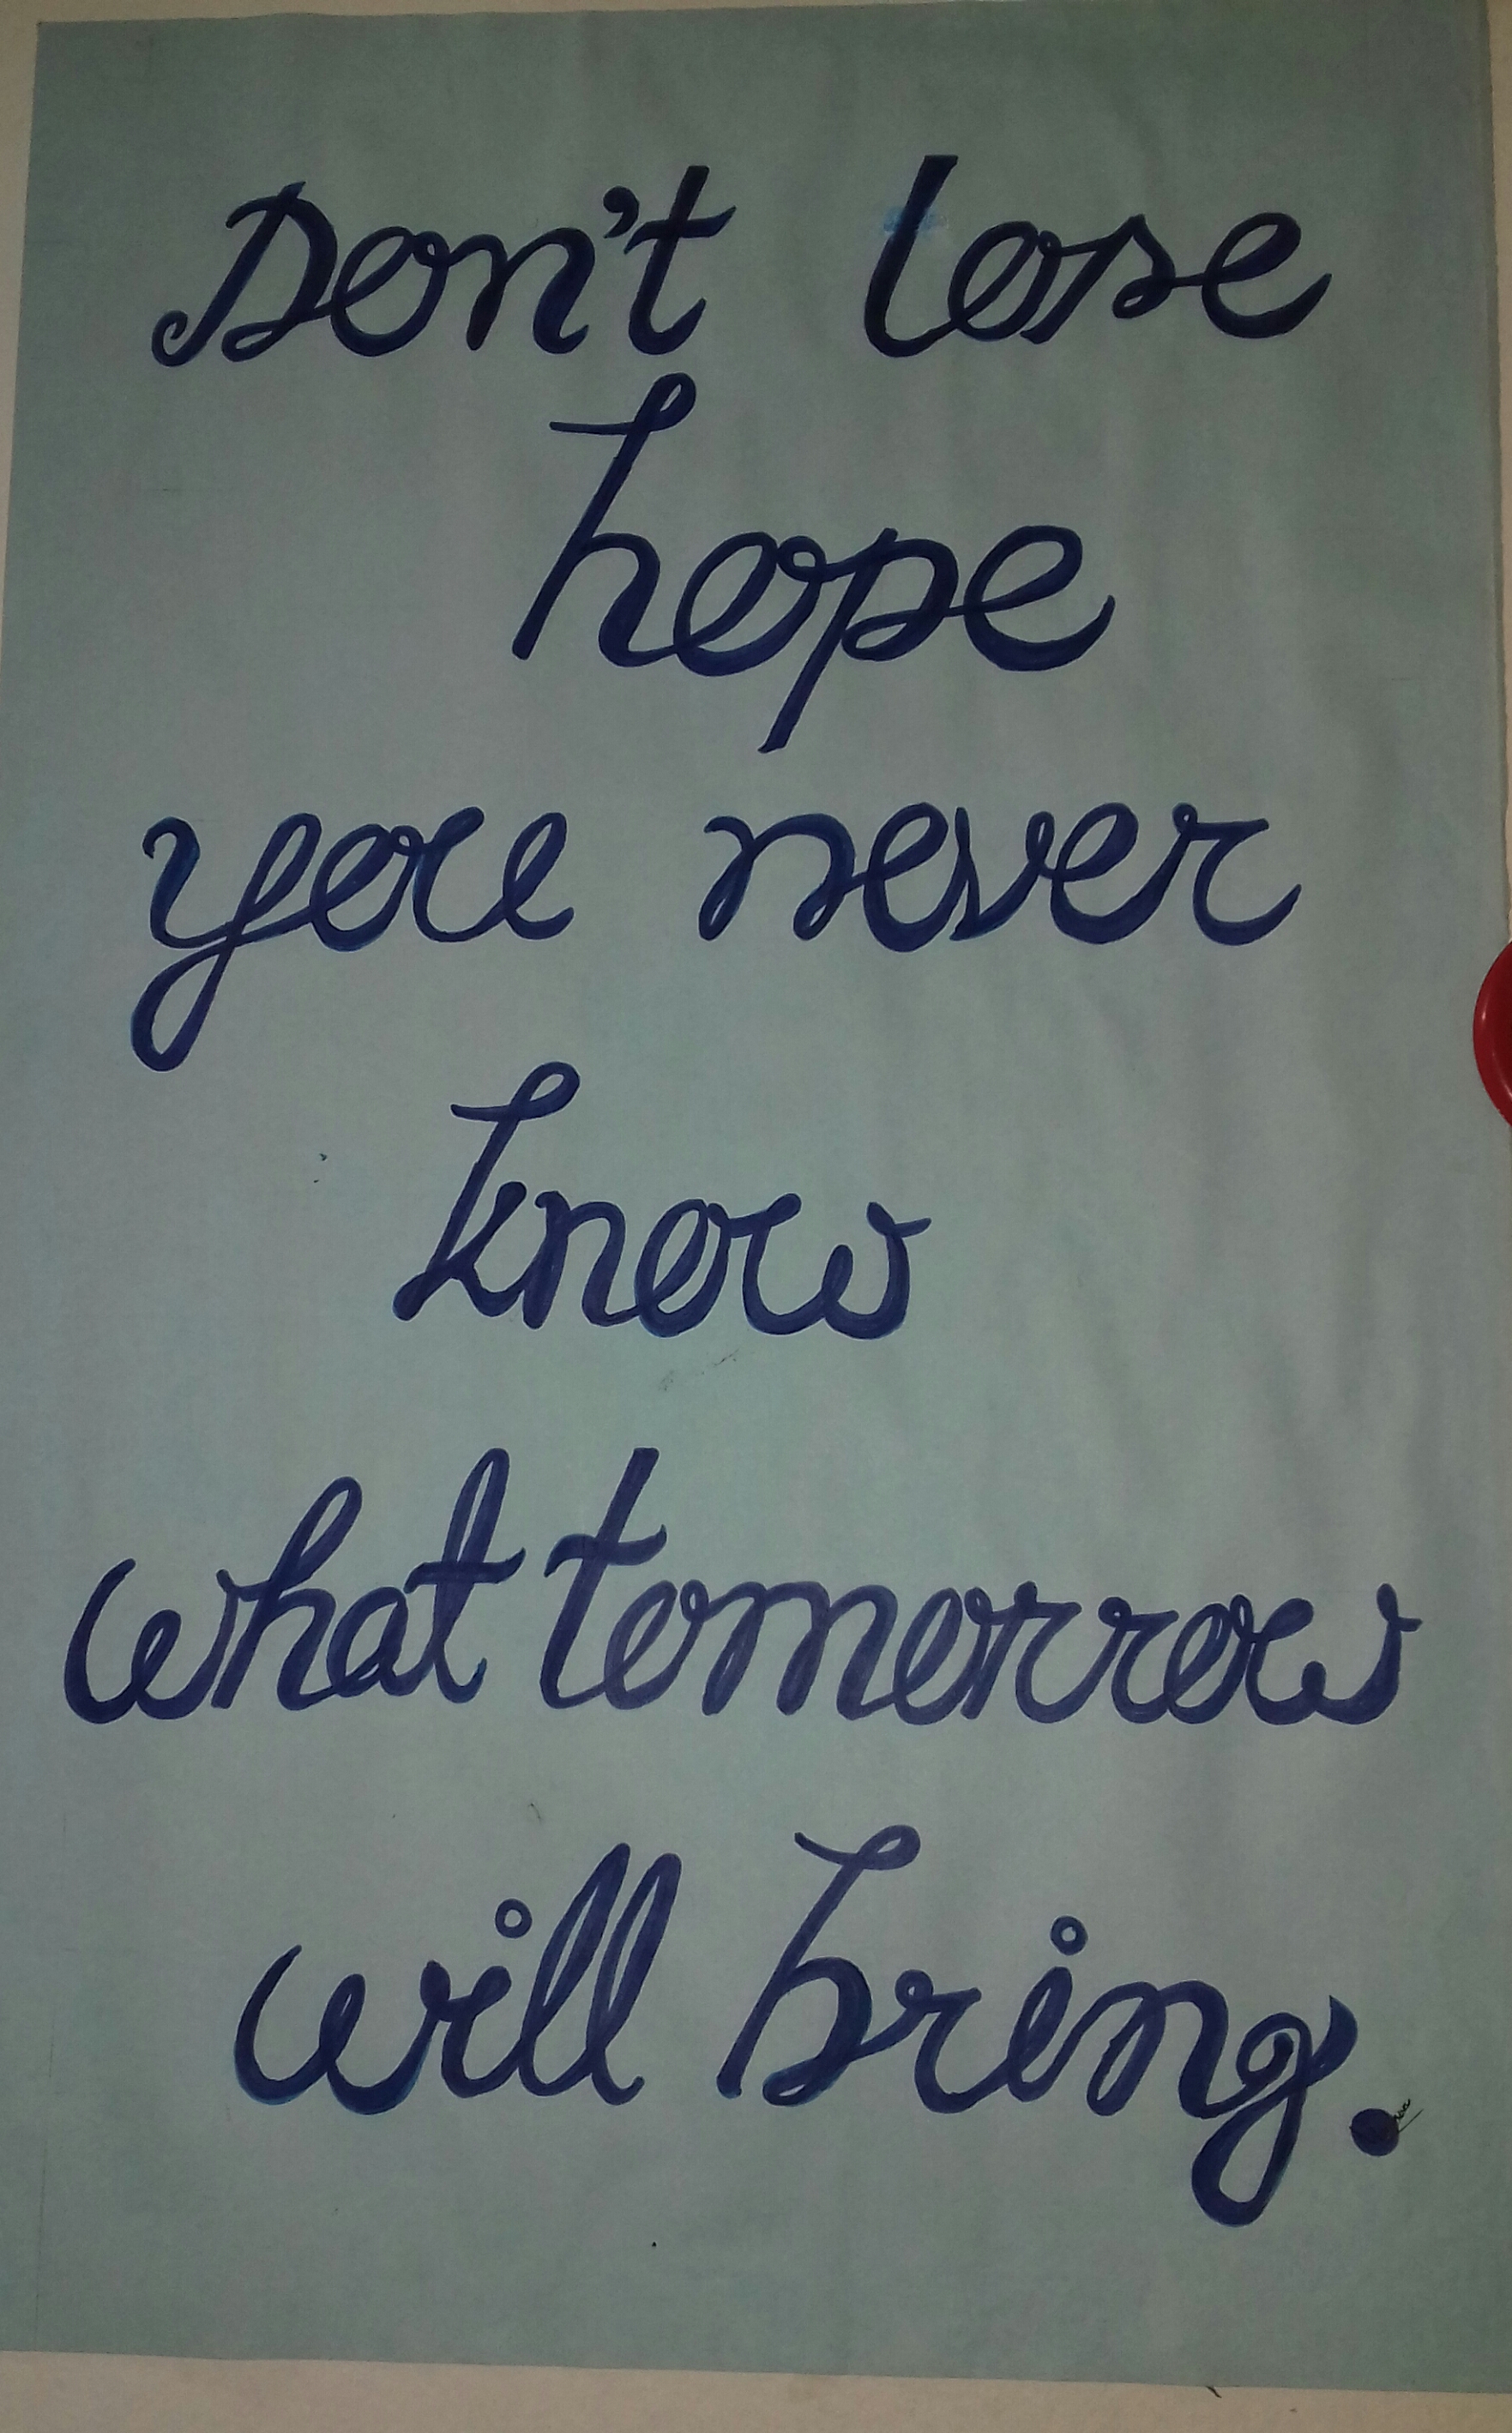 Don't lose
hope
you never
know
what tomorrow
will bring.